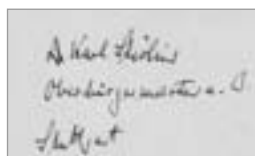 Dr. Karl Strölin
Oberbürgermeister a. D.
Stuttgart